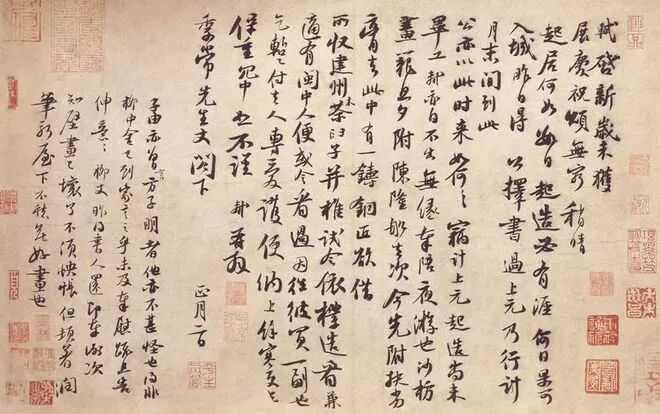 軾啟新歲未獲
展慶祝頌無窮稍晴
起居何如數日起造必有涯何日果可
入城昨日得公擇書過上元乃行計
月末間到此
公亦以此時來如何竊計上元起造尚未
畢工軾亦自不出無緣奉陪夜遊也沙枋
畫籠旦夕附陳隆船去次今先附扶劣
膏去此中有一鑄銅匠欲借
所收建州木茶臼子并椎試令依樣造看兼
適有閩中人便或令看過因往彼買一副也
乞暫付去人專愛護便納上餘寒更乞
保重冗中恕不謹軾再拜
季常先生丈閣下
正月二日
子由亦曾言方子明者他亦不甚怪也得非
柳中舍已到家言之乎未及奉慰疏且告
伸意伸意柳丈昨得書人還即奉謝次
知壁畫已壞了不須怏悵但頓著潤
筆新屋下不愁無好畫也